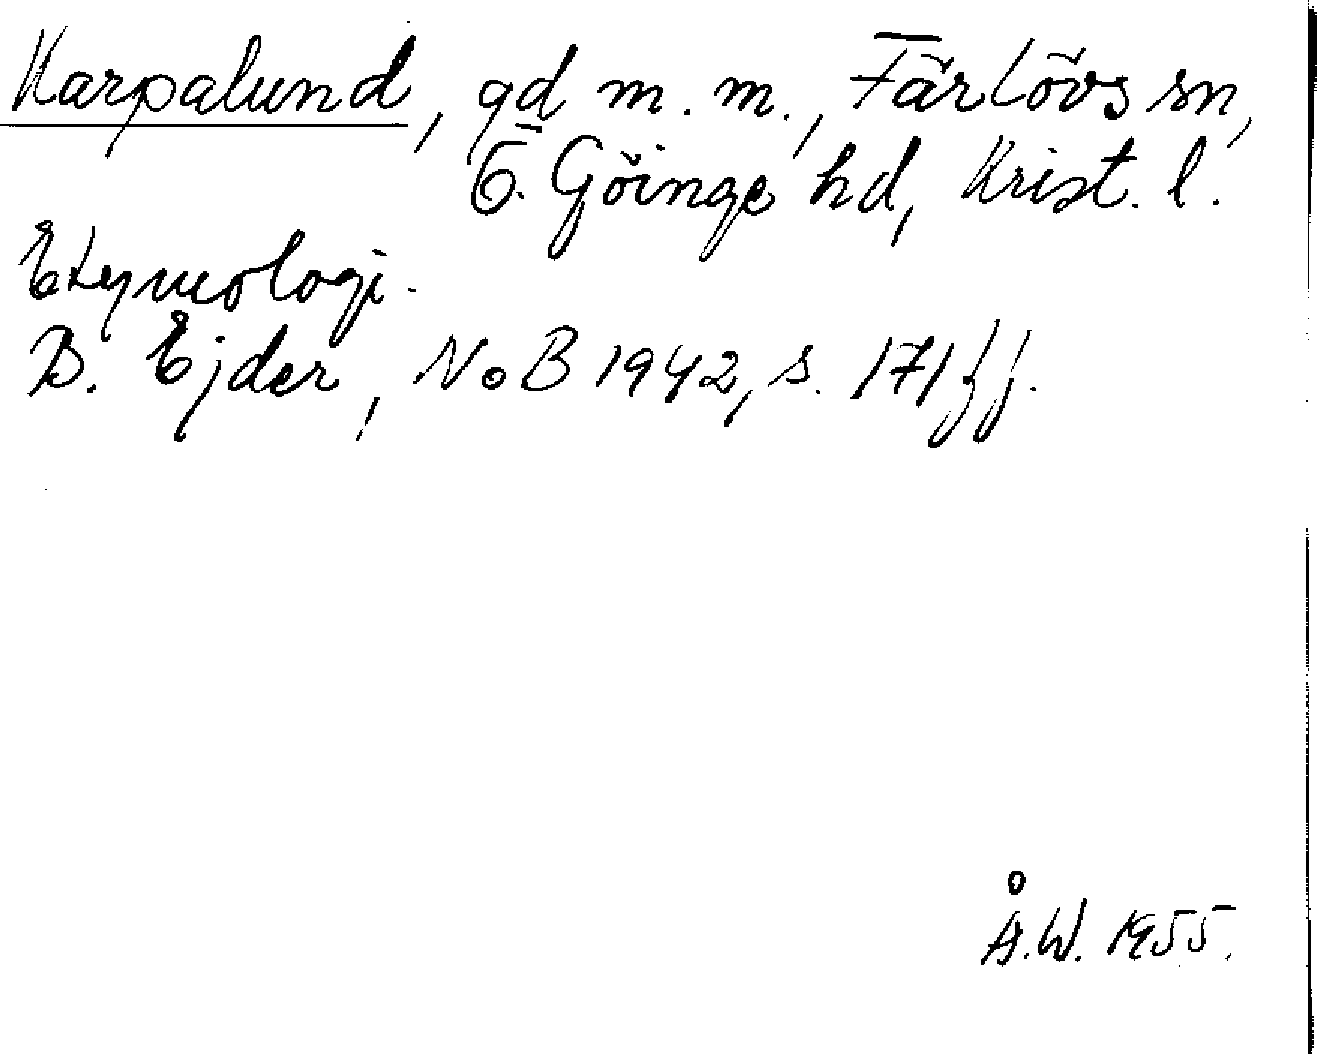 Karpalund, gd m.m., Färlövs sn,
Ö. Göinge hd, Krist. l.
Etymologi.
B. Ejder, NoB 1942, s. 171 ff.
Å.W. 1955.